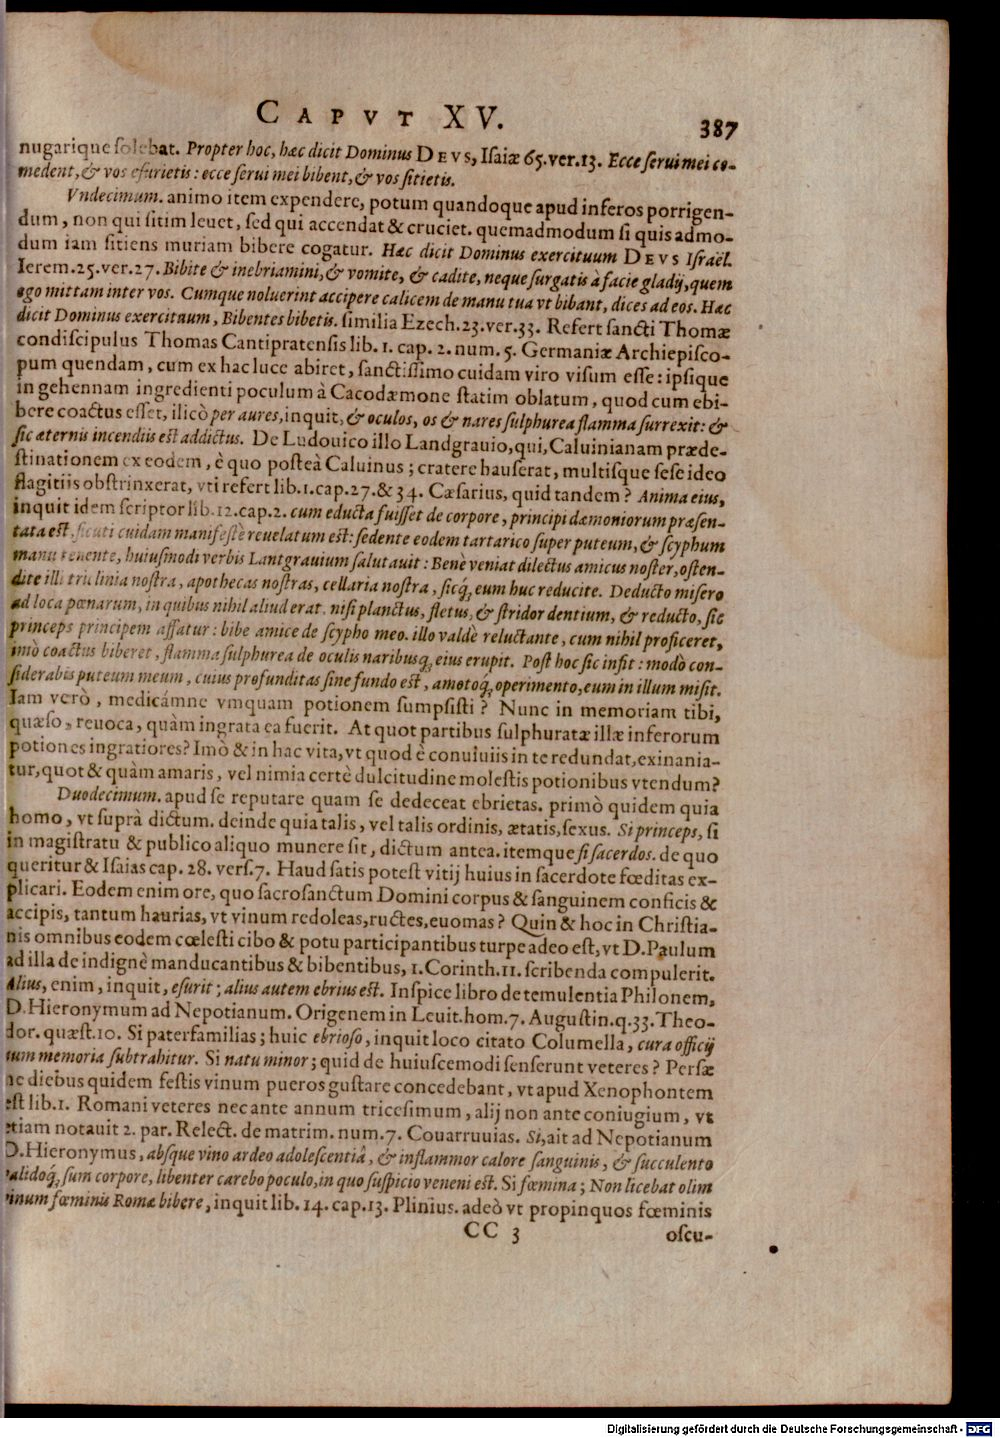 CAPVT XV. 387
nugarique solebat. Propter hoc, hæc dicit Dominus DEVS, Isaiæ 65. ver. 13. Ecce serui mei co-
medent, & vos esurietis: ecce serui mei bibent, & vos sitietis.
Vndecimum. animo item expendere, potum quandoque apud inferos porrigen-
dum, non qui sitim leuet, sed qui accendat & cruciet. quemadmodum si quis admo-
dum iam sitiens muriam bibere cogatur. Hæc dicit Dominus exercituum DEVS Israël.
Ierem. 25. ver. 27. Bibite & inebriamini, & vomite, & cadite, neque surgatis à facie gladij, quem
ego mittam inter vos. Cumque noluerint accipere calicem de manu tua vt bibant, dices ad eos. Hæc
dicit Dominus exercituum, Bibentes bibetis. similia Ezech. 23. ver. 33. Refert sancti Thomæ
condiscipulus Thomas Cantipratensis lib. 1. cap. 2. num. 5. Germaniæ Archiepisco-
pum quendam, cum ex hac luce abiret, sanctissimo cuidam viro visum esse: ipsique
in gehennam ingredienti poculum à Cacodæmone statim oblatum, quod cum ebi-
bere coactus esset, ilicò per aures, inquit, & oculos, os & nares sulphurea flamma surrexit: &
sic æternis incendiis est addictus. De Ludouico illo Landgrauio, qui, Caluinianam præde-
stinationem ex eodem, è quo posteà Caluinus; cratere hauserat, multisque sese ideo
flagitiis obstrinxerat, vti refert lib. 1. cap. 27. & 34. Cæsarius, quid tandem? Anima eius,
inquit idem scriptor lib. 12. cap. 2. cum educta fuisset de corpore, principi dæmoniorum præsen-
tata est, sicuti cuidam manifestè reuelatum est: sedente eodem tartarico super puteum, & scyphum
manu tenente, huiusmodi verbis Lantgrauium salutauit: Benè veniat dilectus amicus noster, osten-
dite illi triclinia nostra, apothecas nostras, cellaria nostra, sicq́; eum huc reducite. Deducto misero
ad loca pœnarum, in quibus nihil aliud erat, nisi planctus, fletus, & stridor dentium, & reducto, sic
princeps principem affatur: bibe amice de scypho meo. illo valdè reluctante, cum nihil proficeret,
imò coactus biberet, flamma sulphurea de oculis naribusq́; eius erupit. Post hoc sic infit: modò con-
siderabis puteum meum, cuius profunditas sine fundo est, amotoq́; operimento, eum in illum misit.
Iam verò, medicámne vmquam potionem sumpsisti? Nunc in memoriam tibi,
quæso, reuoca, quàm ingrata ea fuerit. At quot partibus sulphuratæ illæ inferorum
potiones ingratiores? Imò & in hac vita, vt quod è conuiuiis in te redundat, exinania-
tur, quot & quàm amaris, vel nimia certè dulcitudine molestis potionibus vtendum?
Duodecimum. apud se reputare quam se dedeceat ebrietas. primò quidem quia
homo, vt suprà dictum. deinde quia talis, vel talis ordinis, ætatis, sexus. Si princeps, si
in magistratu & publico aliquo munere sit, dictum antea. itemque si sacerdos. de quo
queritur & Isaias cap. 28. vers. 7. Haud satis potest vitij huius in sacerdote fœditas ex-
plicari. Eodem enim ore, quo sacrosanctum Domini corpus & sanguinem conficis &
accipis, tantum haurias, vt vinum redoleas, ructes, euomas? Quin & hoc in Christia-
nis omnibus eodem cœlesti cibo & potu participantibus turpe adeo est, vt D. Paulum
ad illa de indignè manducantibus & bibentibus, 1. Corinth. 11. scribenda compulerit.
Alius, enim, inquit, esurit; alius autem ebrius est. Inspice libro de temulentia Philonem,
D. Hieronymum ad Nepotianum. Origenem in Leuit. hom. 7. Augustin. q. 33. Theo-
dor. quæst. 10. Si paterfamilias; huic ebrioso, inquit loco citato Columella, cura officij
cum memoria subtrahitur. Si natu minor; quid de huiuscemodi senserunt veteres? Persæ
ne diebus quidem festis vinum pueros gustare concedebant, vt apud Xenophontem
est lib. 1. Romani veteres nec ante annum tricesimum, alij non ante coniugium, vt
etiam notauit 2. par. Relect. de matrim. num. 7. Couarruuias. Si, ait ad Nepotianum
D. Hieronymus, absque vino ardeo adolescentiâ, & inflammor calore sanguinis, & succulento
validoq́; sum corpore, libenter carebo poculo, in quo suspicio veneni est. Si fœmina; Non licebat olim
vinum fœminis Romæ bibere, inquit lib. 14. cap. 13. Plinius. adeò vt propinquos fœminis
CC 3 oscu-
Digitalisierung gefördert durch die Deutsche Forschungsgemeinschaft - DFG